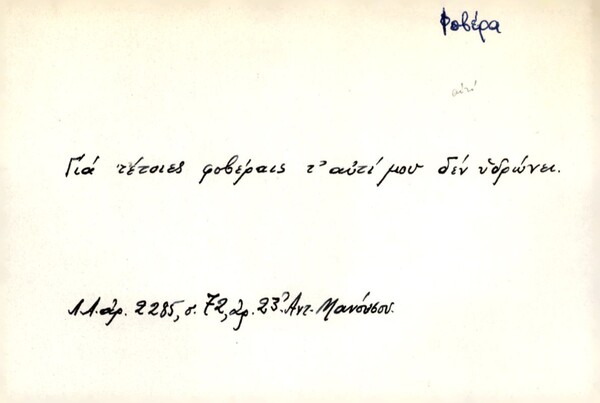 Φοβέρα
αὐτί
Γιά τέτοιες φοβέραις τ' αὐτί μου δέν ὑδρώνει.
Λ.Λ. ἀρ. 2285, σ. 72, ἀρ. 23. Ἀντ. Μανούσου.